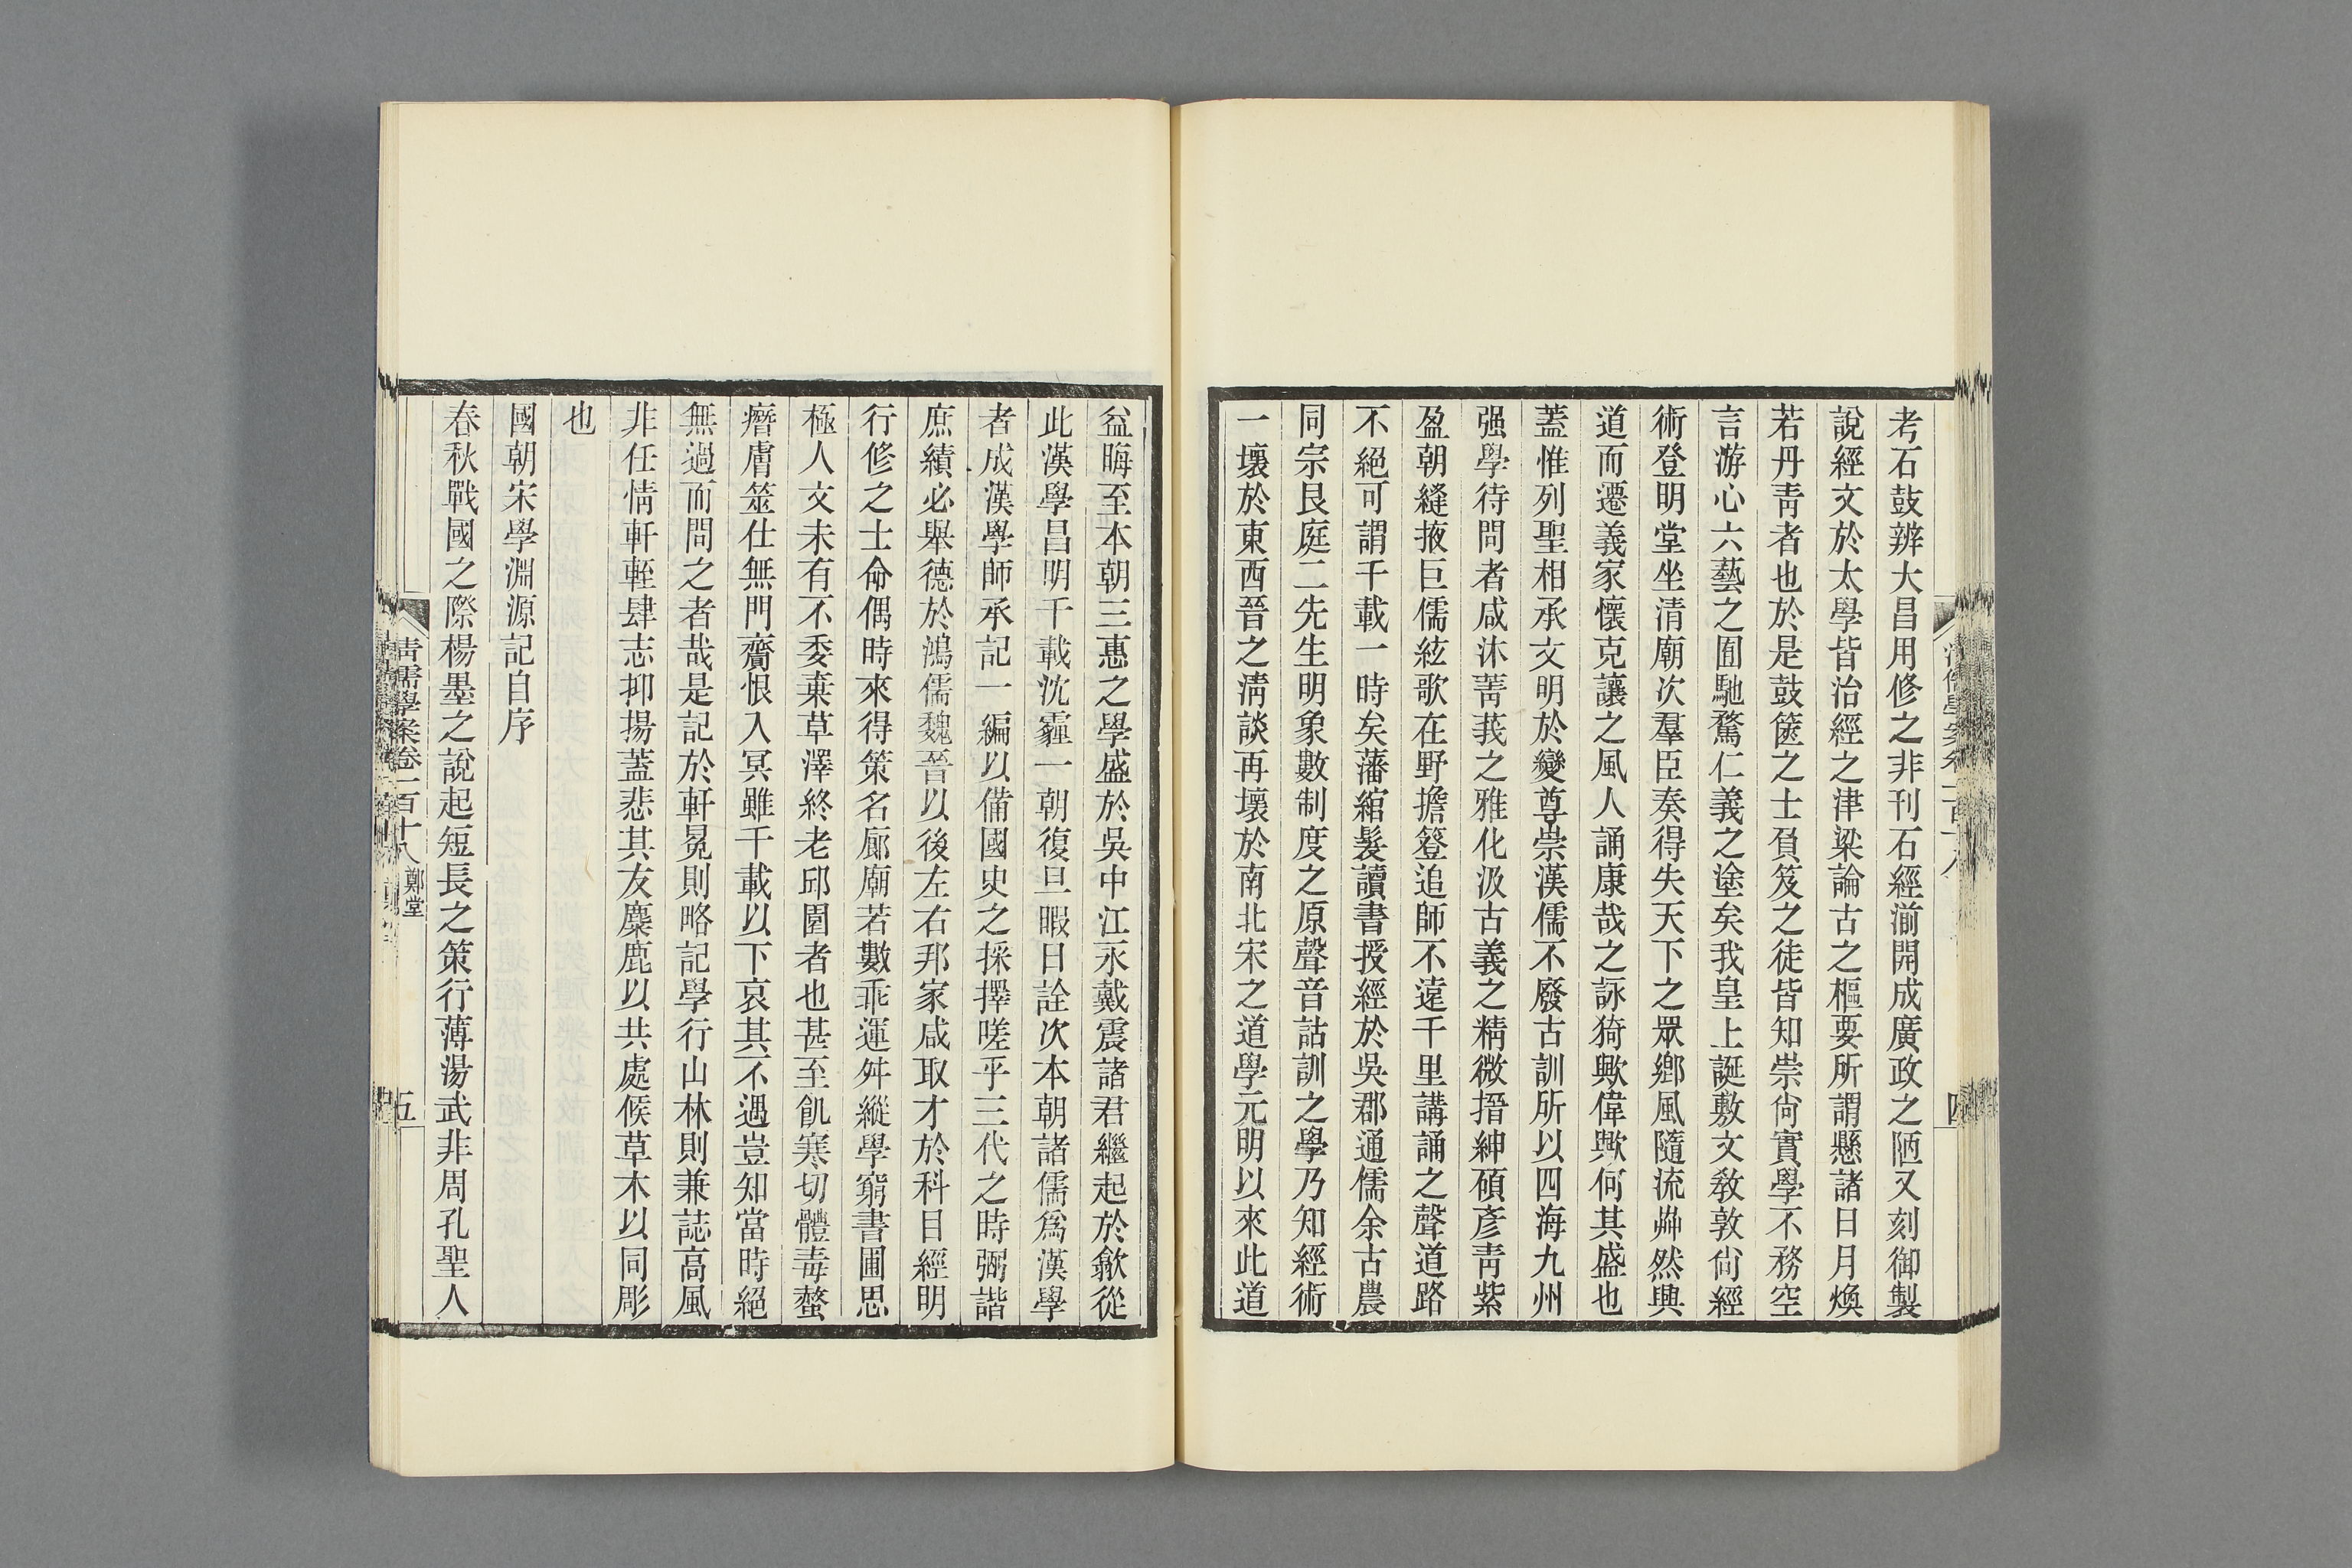 考石鼓辨大昌用修之非刊石經湔開成廣政之陋又刻御製
說經文於太學皆治經之津梁論古之樞要所謂懸諸日月煥
若丹靑者也於是鼓篋之士負笈之徒皆知崇尙實學不務空
言游心六藝之囿馳騖仁義之塗矣我皇上誕敷文敎敦尙經
術登明堂坐清廟次羣臣奏得失天下之眾鄉風隨流芔然興
道而遷義家懷克讓之風人誦康哉之詠猗歟偉歟何其盛也
蓋惟列聖相承文明於變尊崇漢儒不廢古訓所以四海九州
强學待問者咸沐菁莪之雅化汲古義之精微搢紳碩彥靑紫
盈朝縫掖巨儒絃歌在野擔簦追師不遠千里講誦之聲道路
不絕可謂千載一時矣藩綰髮讀書授經於吳郡通儒余古農
同宗艮庭二先生明象數制度之原聲音詁訓之學乃知經術
一壞於東西晉之淸談再壞於南北宋之道學元明以來此道
益晦至本朝三惠之學盛於吳中江永戴震諸君繼起於歙從
此漢學昌明千載沈霾一朝復旦暇日詮次本朝諸儒爲漢學
者成漢學師承記一編以備國史之採擇嗟乎三代之時弼諧
庶績必舉德於鴻儒魏晉以後左右邦家咸取才於科目經明
行修之士命偶時來得策名廊廟若數乖運舛縱學窮書圃思
極人文未有不委棄草澤終老邱園者也甚至飢寒切體毒螫
瘠膚筮仕無門齎恨入冥雖千載以下哀其不遇豈知當時絕
無過而問之者哉是記於軒冕則略記學行山林則兼誌高風
非任情軒輊肆志抑揚蓋悲其友麋鹿以共處候草木以同彫
也
國朝宋學淵源記自序
春秋戰國之際楊墨之說起短長之策行薄湯武非周孔聖人
淸儒學案卷一百十八 鄭堂 五